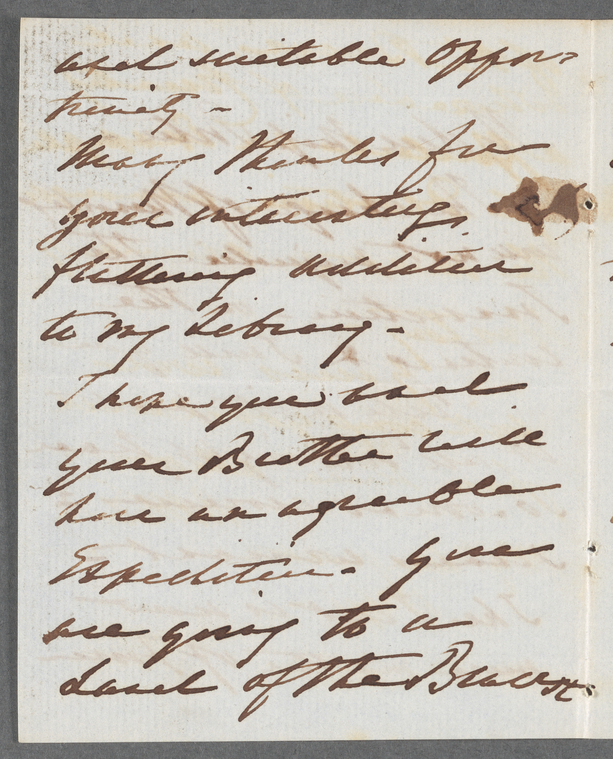 and suitable oppor=
tunity -
Many thanks for
your interesting
flattering addition
to my Library. -
I hope you and
your Brother will
have an agreeable
Expedition - You
are going to a
Land of the Brave &